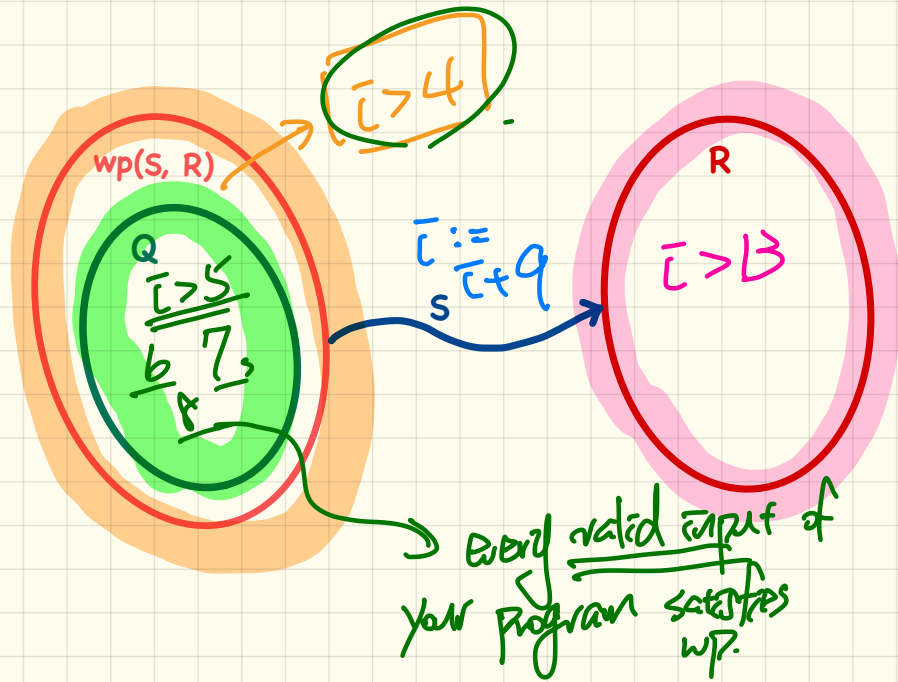 i > 4
wp(S, R)
R
Q
i > 5
6 7,
8
i :=
i + 9
S
i > 13
every valid input of
your program satisfies
wp.